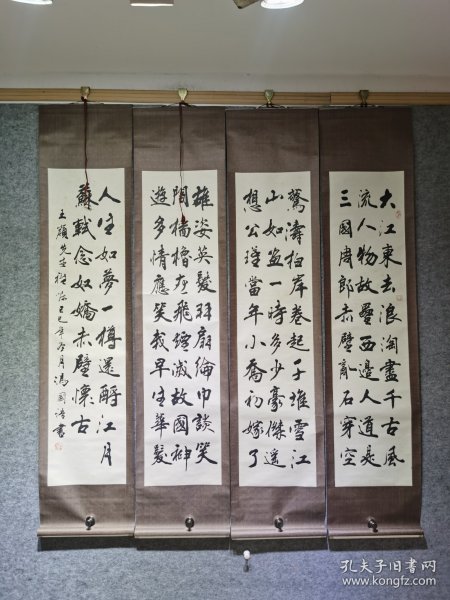 大江東去浪淘盡千古風
流人物故壘西邊人道是
三國周郎赤壁亂石穿空
驚濤拍岸卷起千堆雪江
山如畫一時多少豪傑遙
想公瑾當年小喬初嫁了
雄姿英髮羽扇綸巾談笑
間檣櫓灰飛煙滅故國神
遊多情應笑我早生華髮
人生如夢一樽還酹江月
蘇軾念奴嬌赤壁懷古
先生 己巳年 月馮國 書
孔夫子旧书网
www.kongfz.com